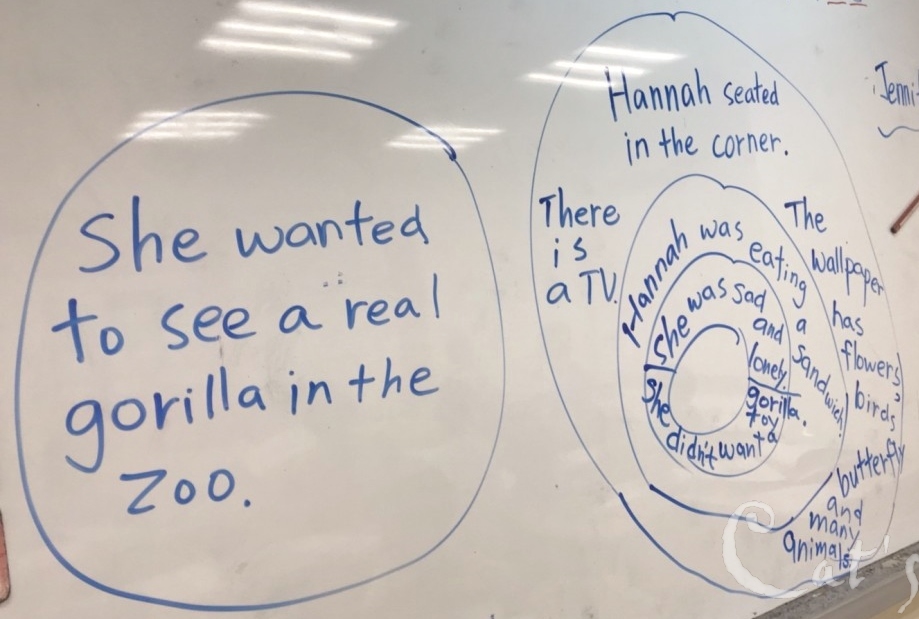 She wanted
to see a real
gorilla in the
zoo.
Hannah seated
in the corner.
There
is
a TV.
The
wallpaper
has
flowers,
birds,
butterfly
and
many
animals.
Hannah was eating a sandwich.
She was sad and lonely.
She didn't want a gorilla toy.
Cat's